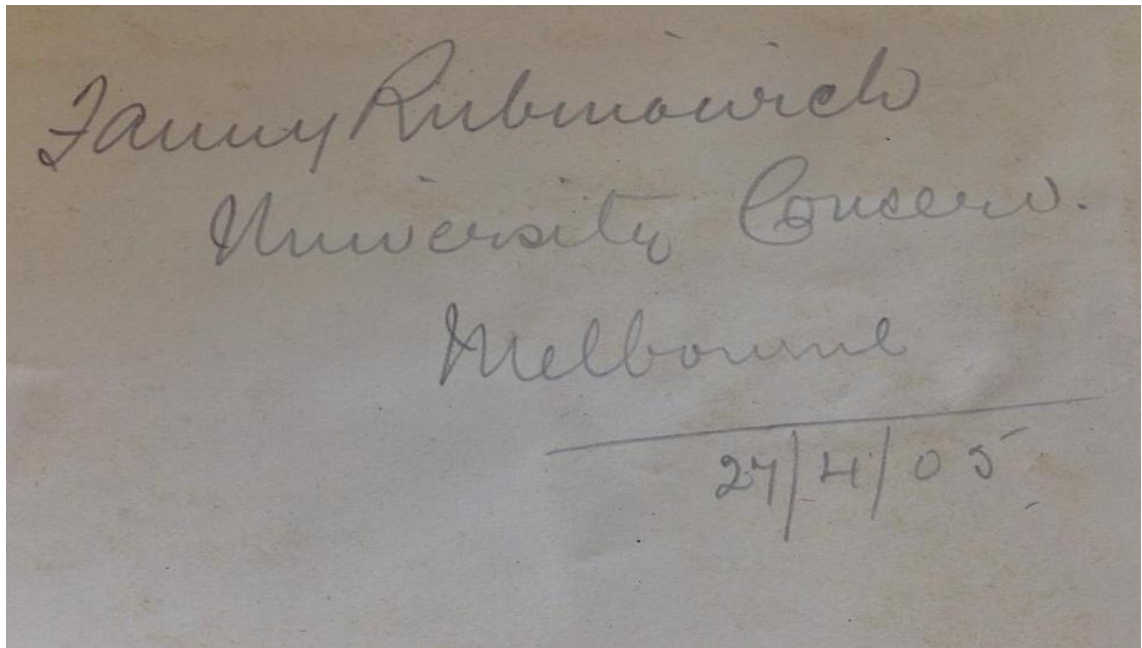 Fanny Rubinowich
University Conserv.
Melbourne
27/4/05